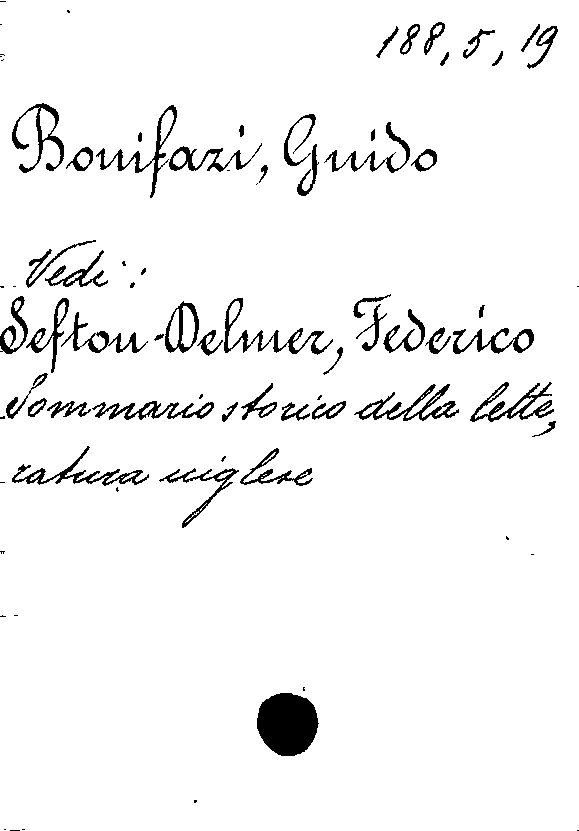 188, 5, 19
Bonifazi, Guido
Vedi:
Sefton-Delmer, Federico
Sommario storico della lette,
ratura inglese